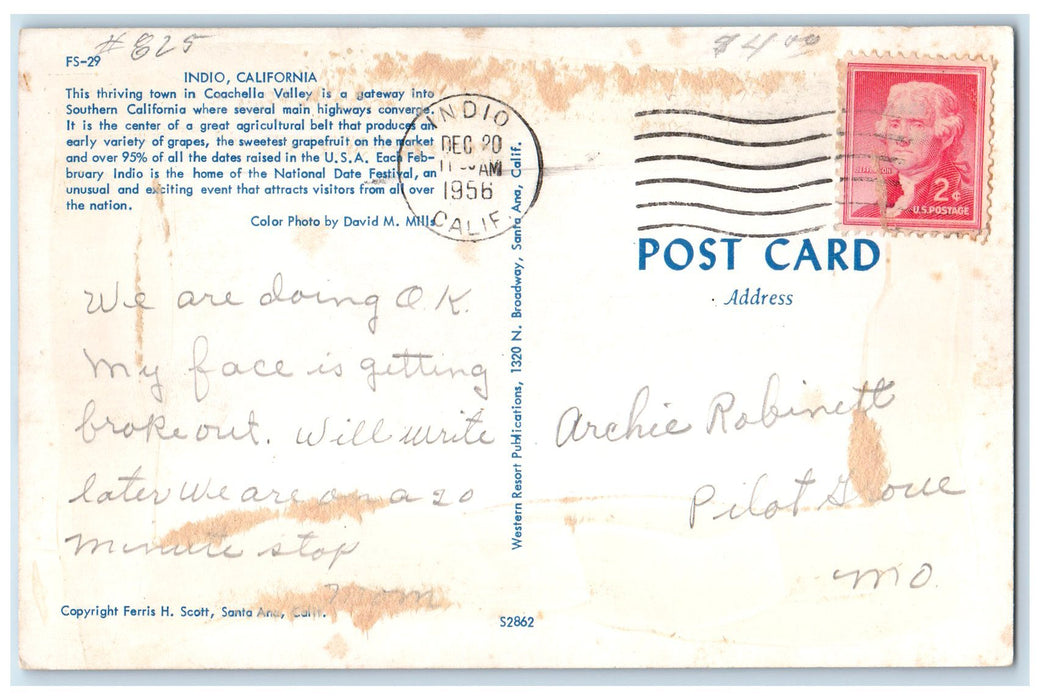 # E25
$4.00
FS-29
INDIO, CALIFORNIA
This thriving town in Coachella Valley is a gateway into
Southern California where several main highways converge.
It is the center of a great agricultural belt that produces an
early variety of grapes, the sweetest grapefruit on the market
and over 95% of all the dates raised in the U.S.A. Each Feb-
bruary Indio is the home of the National Date Festival, an
unusual and exciting event that attracts visitors from all over
the nation.
Color Photo by David M. Mills
INDIO
DEC 20
AM
1956
CALIF.
JEFFERSON
2¢
U.S. POSTAGE
POST CARD
Address
We are doing O.K.
My face is getting
broke out. Will write
later We are on a 20
minute stop
Mom
Archie Robinett
Pilot Grove
Mo.
Western Resort Publications, 1320 N. Broadway, Santa Ana, Calif.
Copyright Ferris H. Scott, Santa Ana, Calif.
S2862